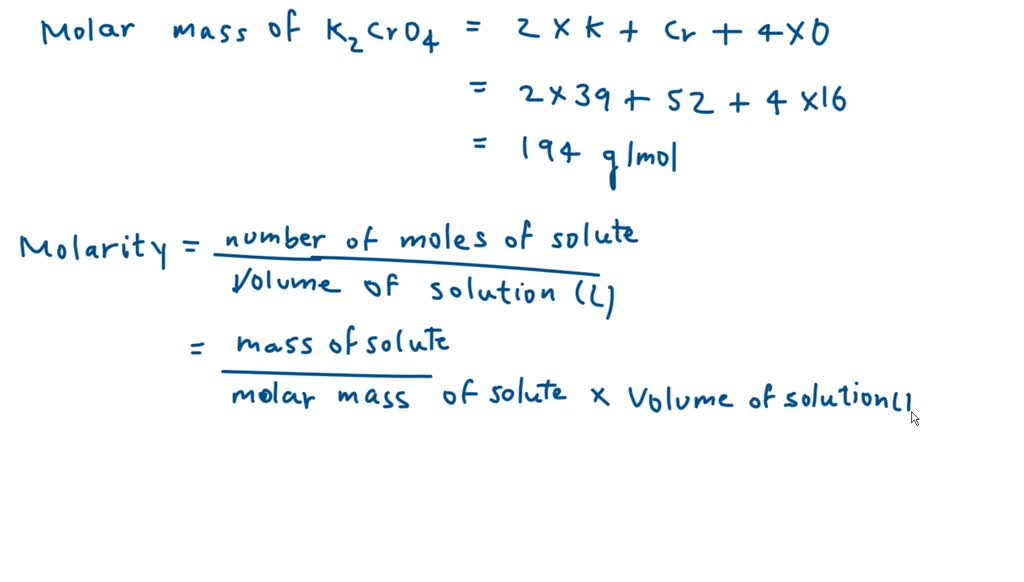 Molar mass of K₂CrO₄ = 2 × K + Cr + 4×O
= 2×39 + 52 + 4 ×16
= 194 g/mol
Molarity = number of moles of solute
Volume of solution (L)
= mass of solute
molar mass of solute × Volume of solution(l